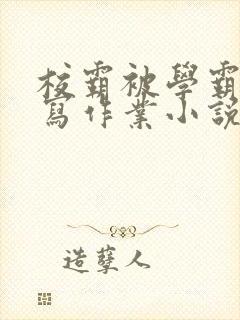 校霸被學霸
寫作業小說
造孽人